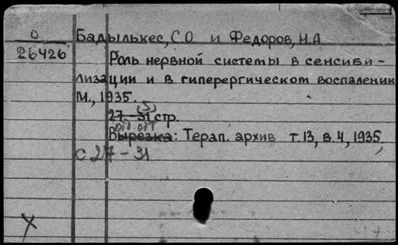 О Бадылькес, С.О и Федоров, Н.А
26426 Роль нервной системы в сенсиби-
лизации и в гиперергическом воспалении
М., 1935.
(5)
27-31 стр.
отд. отт
Вырезка: Терап. архив т.13, в.4, 1935.
с 27-31